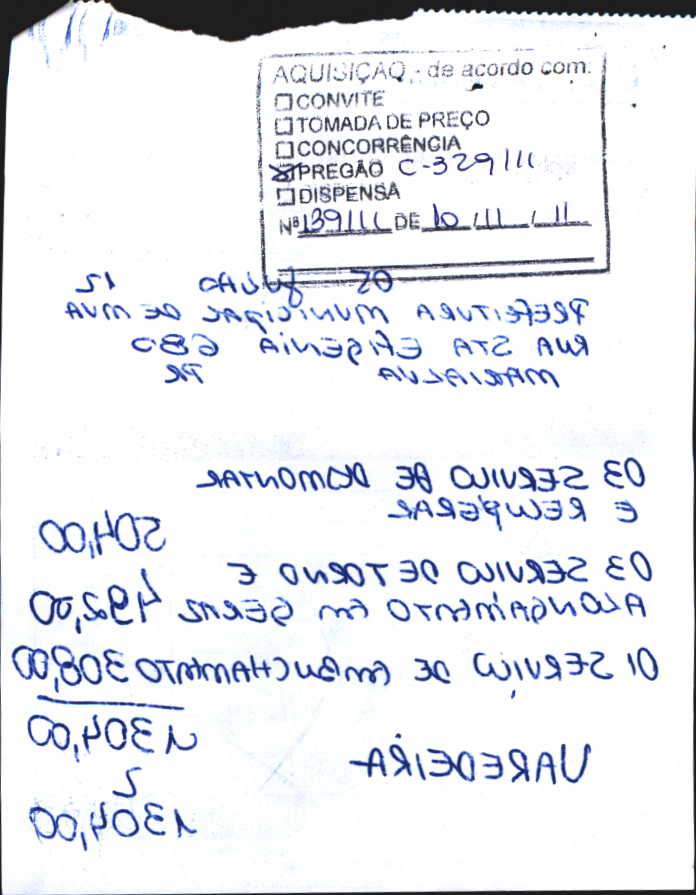 AQUISIÇÃO - de acordo com:
CONVITE
TOMADA DE PREÇO
CONCORRÊNCIA
PREGÃO C-329/11
DISPENSA
Nº 139/11 DE 10/11/11
05 JULHO 12
PREFEITURA MUNICIPAL DE MVA
RUA STA EFIGENIA 680
MARIALVA PR
03 SERVIÇO DE DESMONTAR
E RECUPERAR
504,00
03 SERVIÇO DE TORNO E
ALONGAMENTO EM GERAL 492,00
01 SERVIÇO DE EMBUCHAMENTO 308,00
1304,00
VAREDEIRA
1304,00